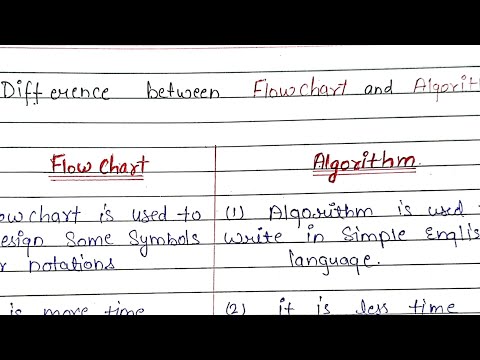 Difference between Flowchart and Algorith
Flow Chart
Algorithm
owchart is used to
esign Some Symbols
r notations
is more time
(1) Algorithm is used t
write in Simple Englis
language.
(2) it is less time